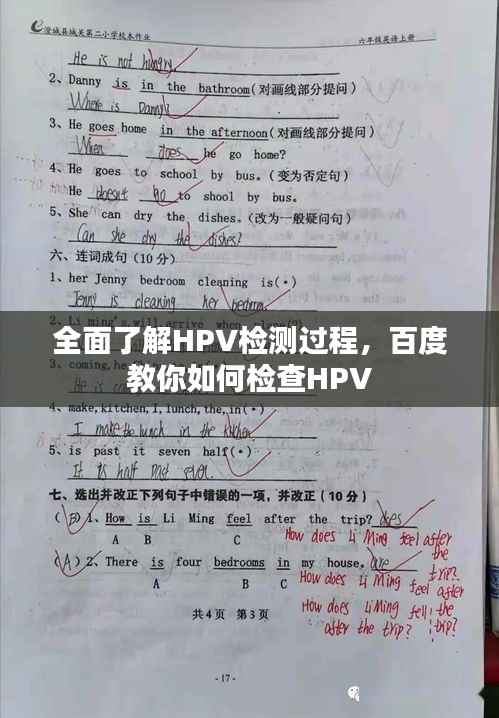 澄城县城关第二小学校本作业 六年级英语上册
He is not hungry
2、Danny is in the bathroom(对画线部分提问)
Where is Danny?
3、He goes home in the afternoon(对画线部分提问)
When does he go home?
4、He goes to school by bus.(变为否定句)
He doesn't go to shool by bus.
5、She can dry the dishes.(改为一般疑问句)
Can she dry the dishes?
六、连词成句(10分)
1、her Jenny bedroom cleaning is(·)
Jenny is cleaning her bedroom.
全面了解HPV检测过程，百度
教你如何检查HPV
3、coming,he
4、make,kitchen,I,lunch,the,in(·)
I make the lunch in the kitchen
5、is past it seven half(·)
It is half past seven.
七、选出并改正下列句子中错误的一项，并改正(10分)
(B)1、How is Li Ming feel after the trip? does
A B C
How does Li Ming feel after the trip?
(A)2、There is four bedrooms in my house. are
A B C
How does Li Ming feel after the trip?
How does Li Ming fell after the trip?
共4页 第3页
-17-